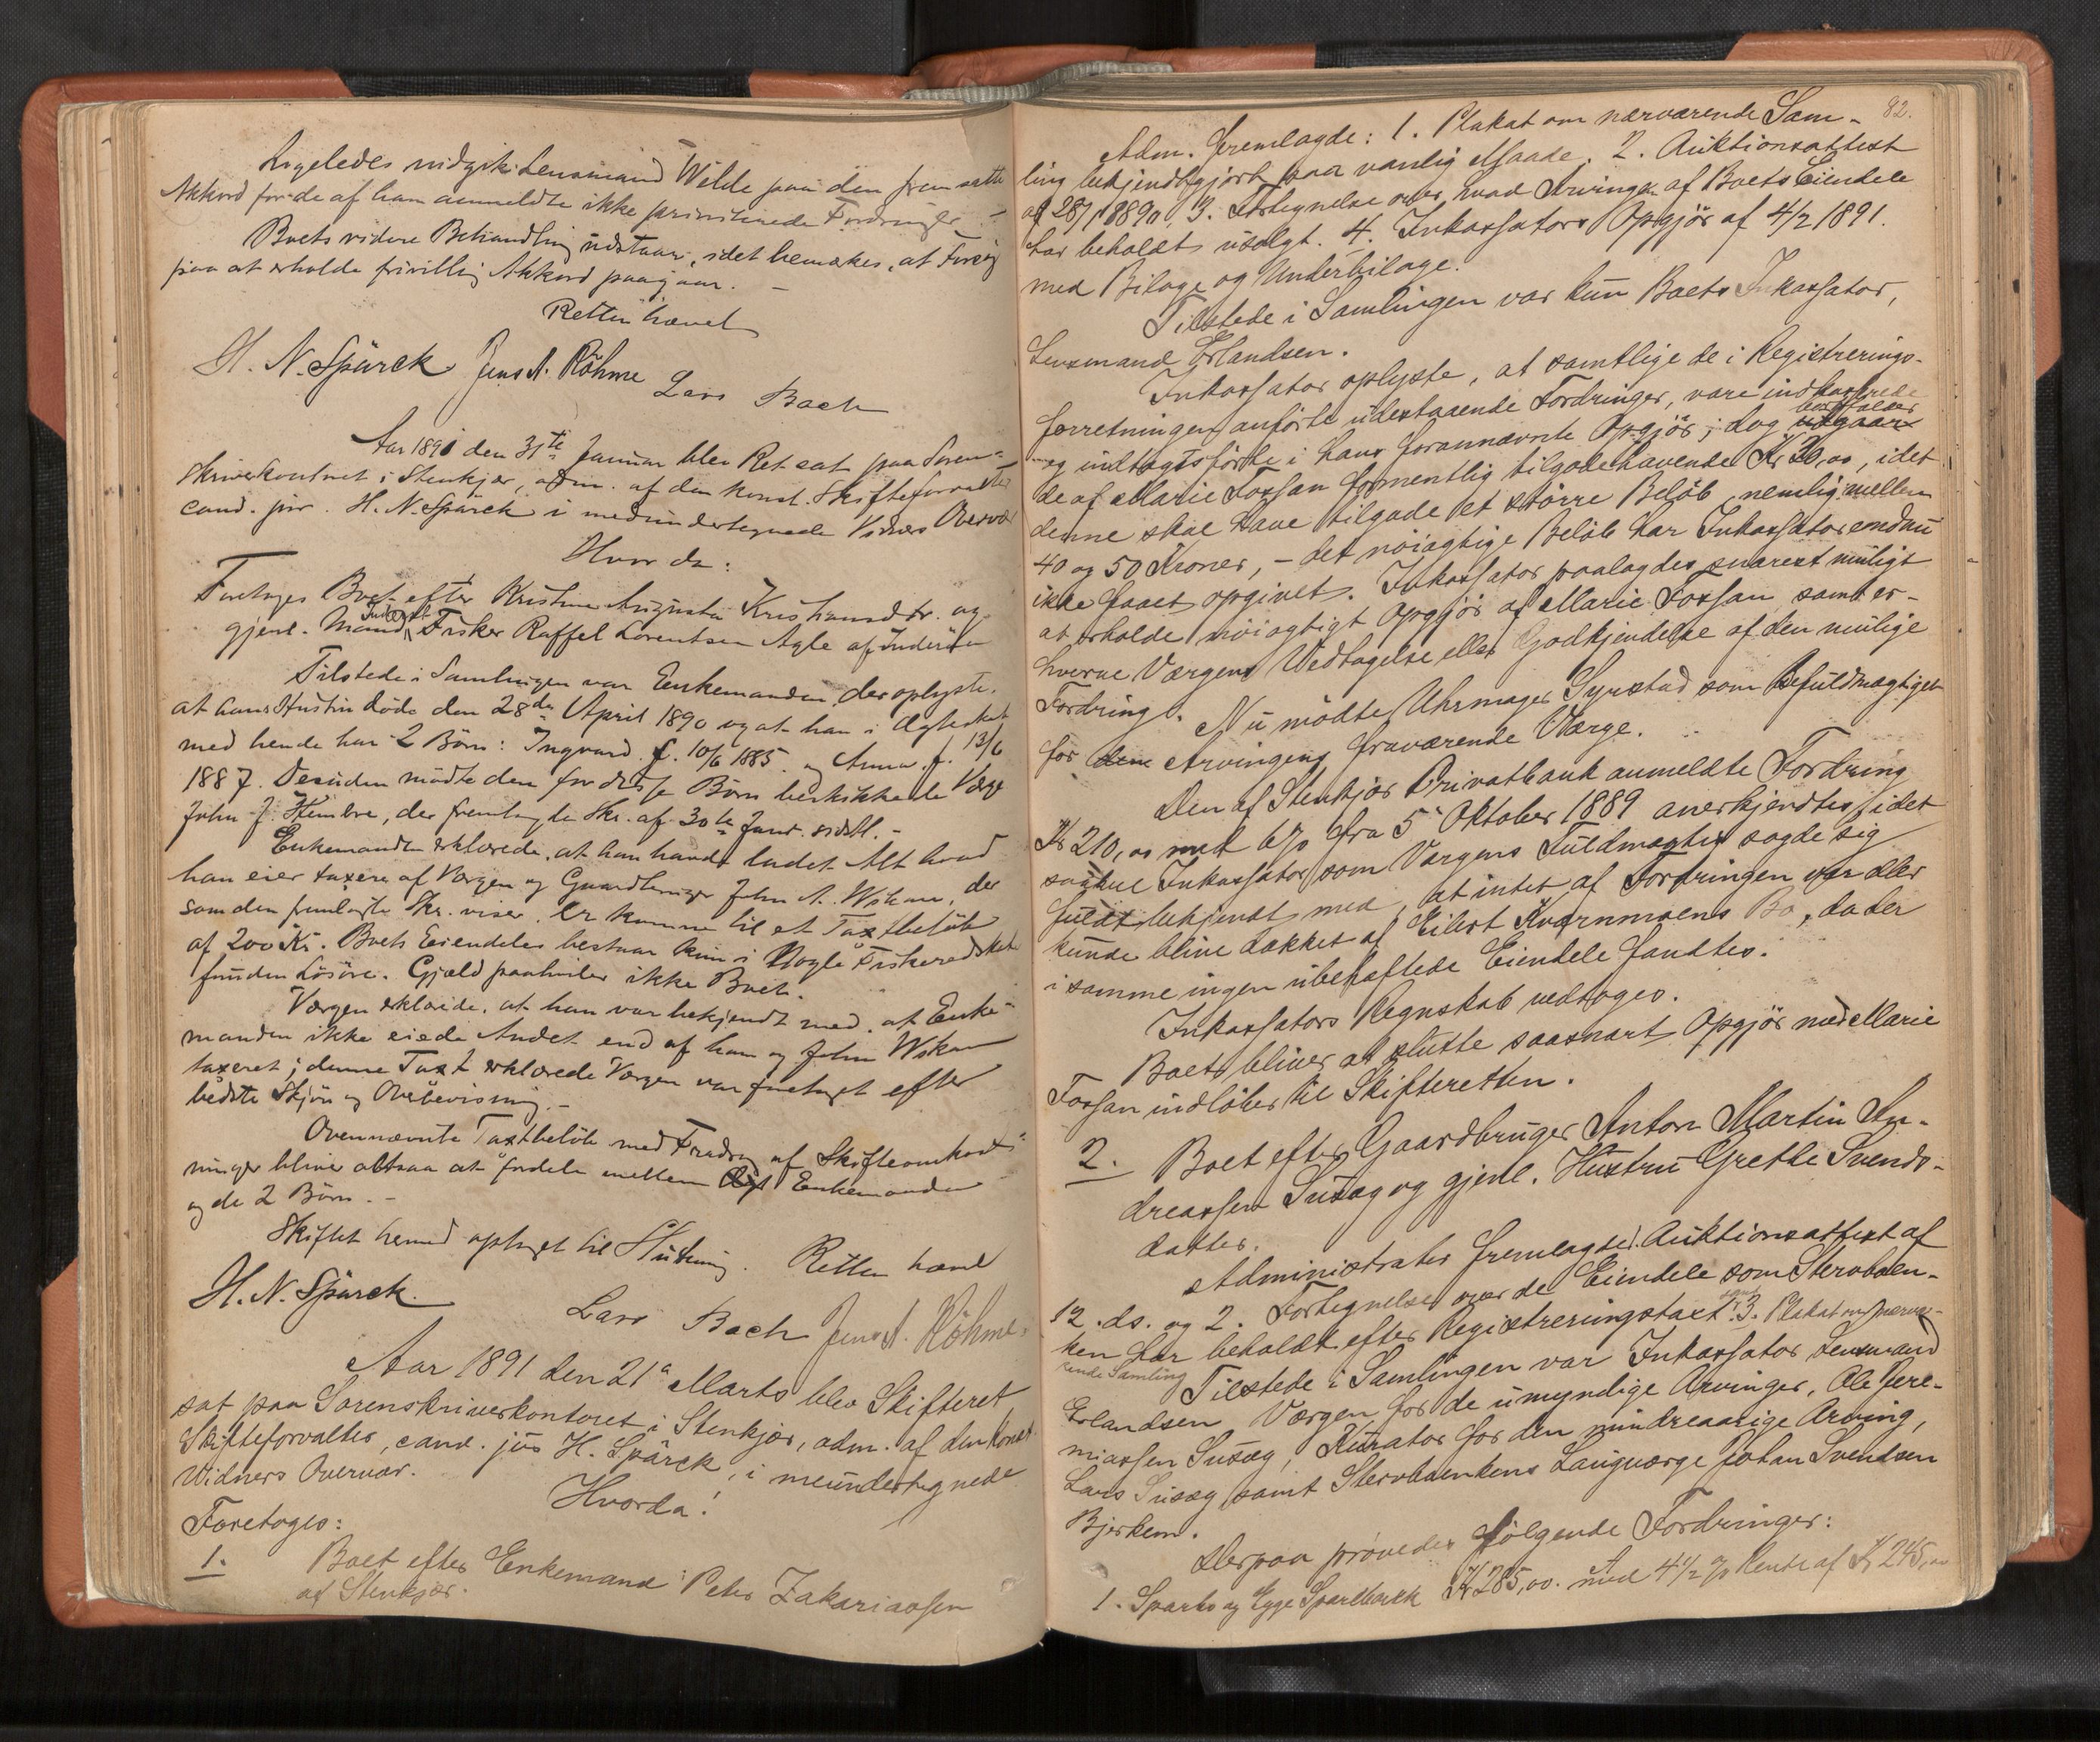 Ligeledes vedgik Lensmand Wilde paa den fremsatte
Akkord for de af ham anmeldte ikke prioriterede Fordringer. –
Boets videre Behandling udstaar, idet bemærkes, at Forsøg
paa at erholde frivillig Akkord paagaar. –
Retten hævet
H. N. Spärck Jens A. Röhme
Lars Bach
Aar 1891 den 31te Januar blev Ret sat paa Soren-
skriverkontoret i Stenkjær, adm. af den konst. Skifteforvalter
cand. jur. H. N. Spärck i medundertegnede Vidners Overvær
Hvor da:
Foretoges Boet efter Kristine Augusta Kristiansdtr. og
gjenl. Mand Fisker Raffel Lorentsen Agle af Inderøen
Tilstede i Samlingen var Enkemanden, der oplyste,
at hans Hustru døde den 28de April 1890 og at han i Ægteskab
med hende har 2 Børn: Ingvard f. 10/6 1885 og Anna f. 13/6
1887. Desuden mødte den for disse Børn beskikkede Værge
John J. Hembre, der fremlagde Skr. af 30te Janr. sidstl. –
Enkemanden erklærede, at han havde ladet Alt hvad
han eier taxere af Værgen og Gaardbruger John A. Wikan, der
som den fremlagte Skr. viser, er kommne til et Taxtbeløb
af 200 Kr. Boets Eiendele bestaar kun i Nogle Fiskeredskab
foruden Løsøre. Gjæld paahviler ikke Boet.
Værgen erklærede, at han var bekjendt med, at Enke-
manden ikke eiede Andet end af ham og John Wikan
taxeret; denne Taxt erklærede Værgen var foretaget efter
bedste Skjøn og Overbevisning. –
Ovennævnte Taxtbeløb med Fradrag af Skifteomkost-
ninger bliver altsaa at fordele mellem Enkemanden
og de 2 Børn. –
Skiftet hermed optaget til Slutning. Retten hævet
H. N. Spärck.
Lars Bach Jens A. Röhme.
Aar 1891 den 21de Marts blev Skifteret
sat paa Sorenskriverkontoret i Stenkjær, adm. af den konst.
Skifteforvalter, cand. jur H. Spärck, i meundertegnede
Vidners Overvær.
Hvorda!
Foretoges:
1. Boet efter Enkemand Peter Zakariassen
af Stenkjær.
82.
Adm. fremlagde: 1. Plakat om nærværende Sam-
ling bekjendtgjort paa vanlig Maade. 2. Auktionsattest
af 28/1 1889, 3. Fortegnelse over, hvad Arvinger af Boets Eiendele
har beholdt usolgt. 4. Inkassators Opgjör af 4/2 1891.
med Bilage og Underbilage.
Tilstede i Samlingen var kun Boets Inkassator,
Lensmand Erlandsen.
Inkassator oplyste, at samtlige de i Registrerings-
forretningen anførte udestaaende Fordringer, vare indkasserede
og indtægtsførte i hans forannævnte Opgjör; dog bortfalder udgaar
de af Marie Fossan formentlig tilgodehavende Kr 20,00, idet
denne skal have tilgode et større Beløb, nemlig mellem
40 og 50 Kroner, – det nøiagtige Beløb har Inkassator endnu
ikke faaet opgivet. Inkassator paalagdes snarest muligt
at erholde nøiagtigt Opgjör af Marie Fossan samt er-
hverve Værgens Vedtagelse eller Godkjendelse af den mulige
Fordring. Nu mødte Uhrmager Syrstad som Befuldmægtiget
for den Arvingens fraværende Værge.
Den af Stenkjær Privatbank anmeldte Fordring
Kr 210,00 med 6% fra 5 Oktober 1889 anerkjendtes idet
saavel Inkassator som Værgens Fuldmægtig sagde sig
fuldt bekjendt med, at intet af Fordringen var eller
kunde blive dækket af Eilert Kvarnmoens Bo, da der
i samme ingen ubehæftede Eiendele fandtes.
Inkassators Regnskab vedtoges.
Boet bliver at slutte saasnart Opgjör med Marie
Fossan indløber til Skifteretten.
2. Boet efter Gaardbruger Anton Martin An-
dreassen Susæg og gjenl. Hustru Grethe Svends-
datter.
Administrator fremlagde 1. Auktionsattest af
12. ds. og 2. Fortegnelse over de Eiendele som Stervboen-
ken har beholdt efter Registreringstaxt samt 3. Plakat om nærvæ-
rende Samling
Tilstede i Samlingen var Inkassator Lensmand
Erlandsen, Værgen for de umyndige Arvinger, Ole Jere-
miassen Susæg, Kurator for den mindreaarige Arving,
Lars Susæg samt Stervboenkens Laugværge Johan Svendsen
Bjerkem.
Derpaa prøvedes følgende Fordringer:
1. Sparbo og Egge Sparebank Kr 285,00. med 4 1/2 % Rente af Kr 245,00